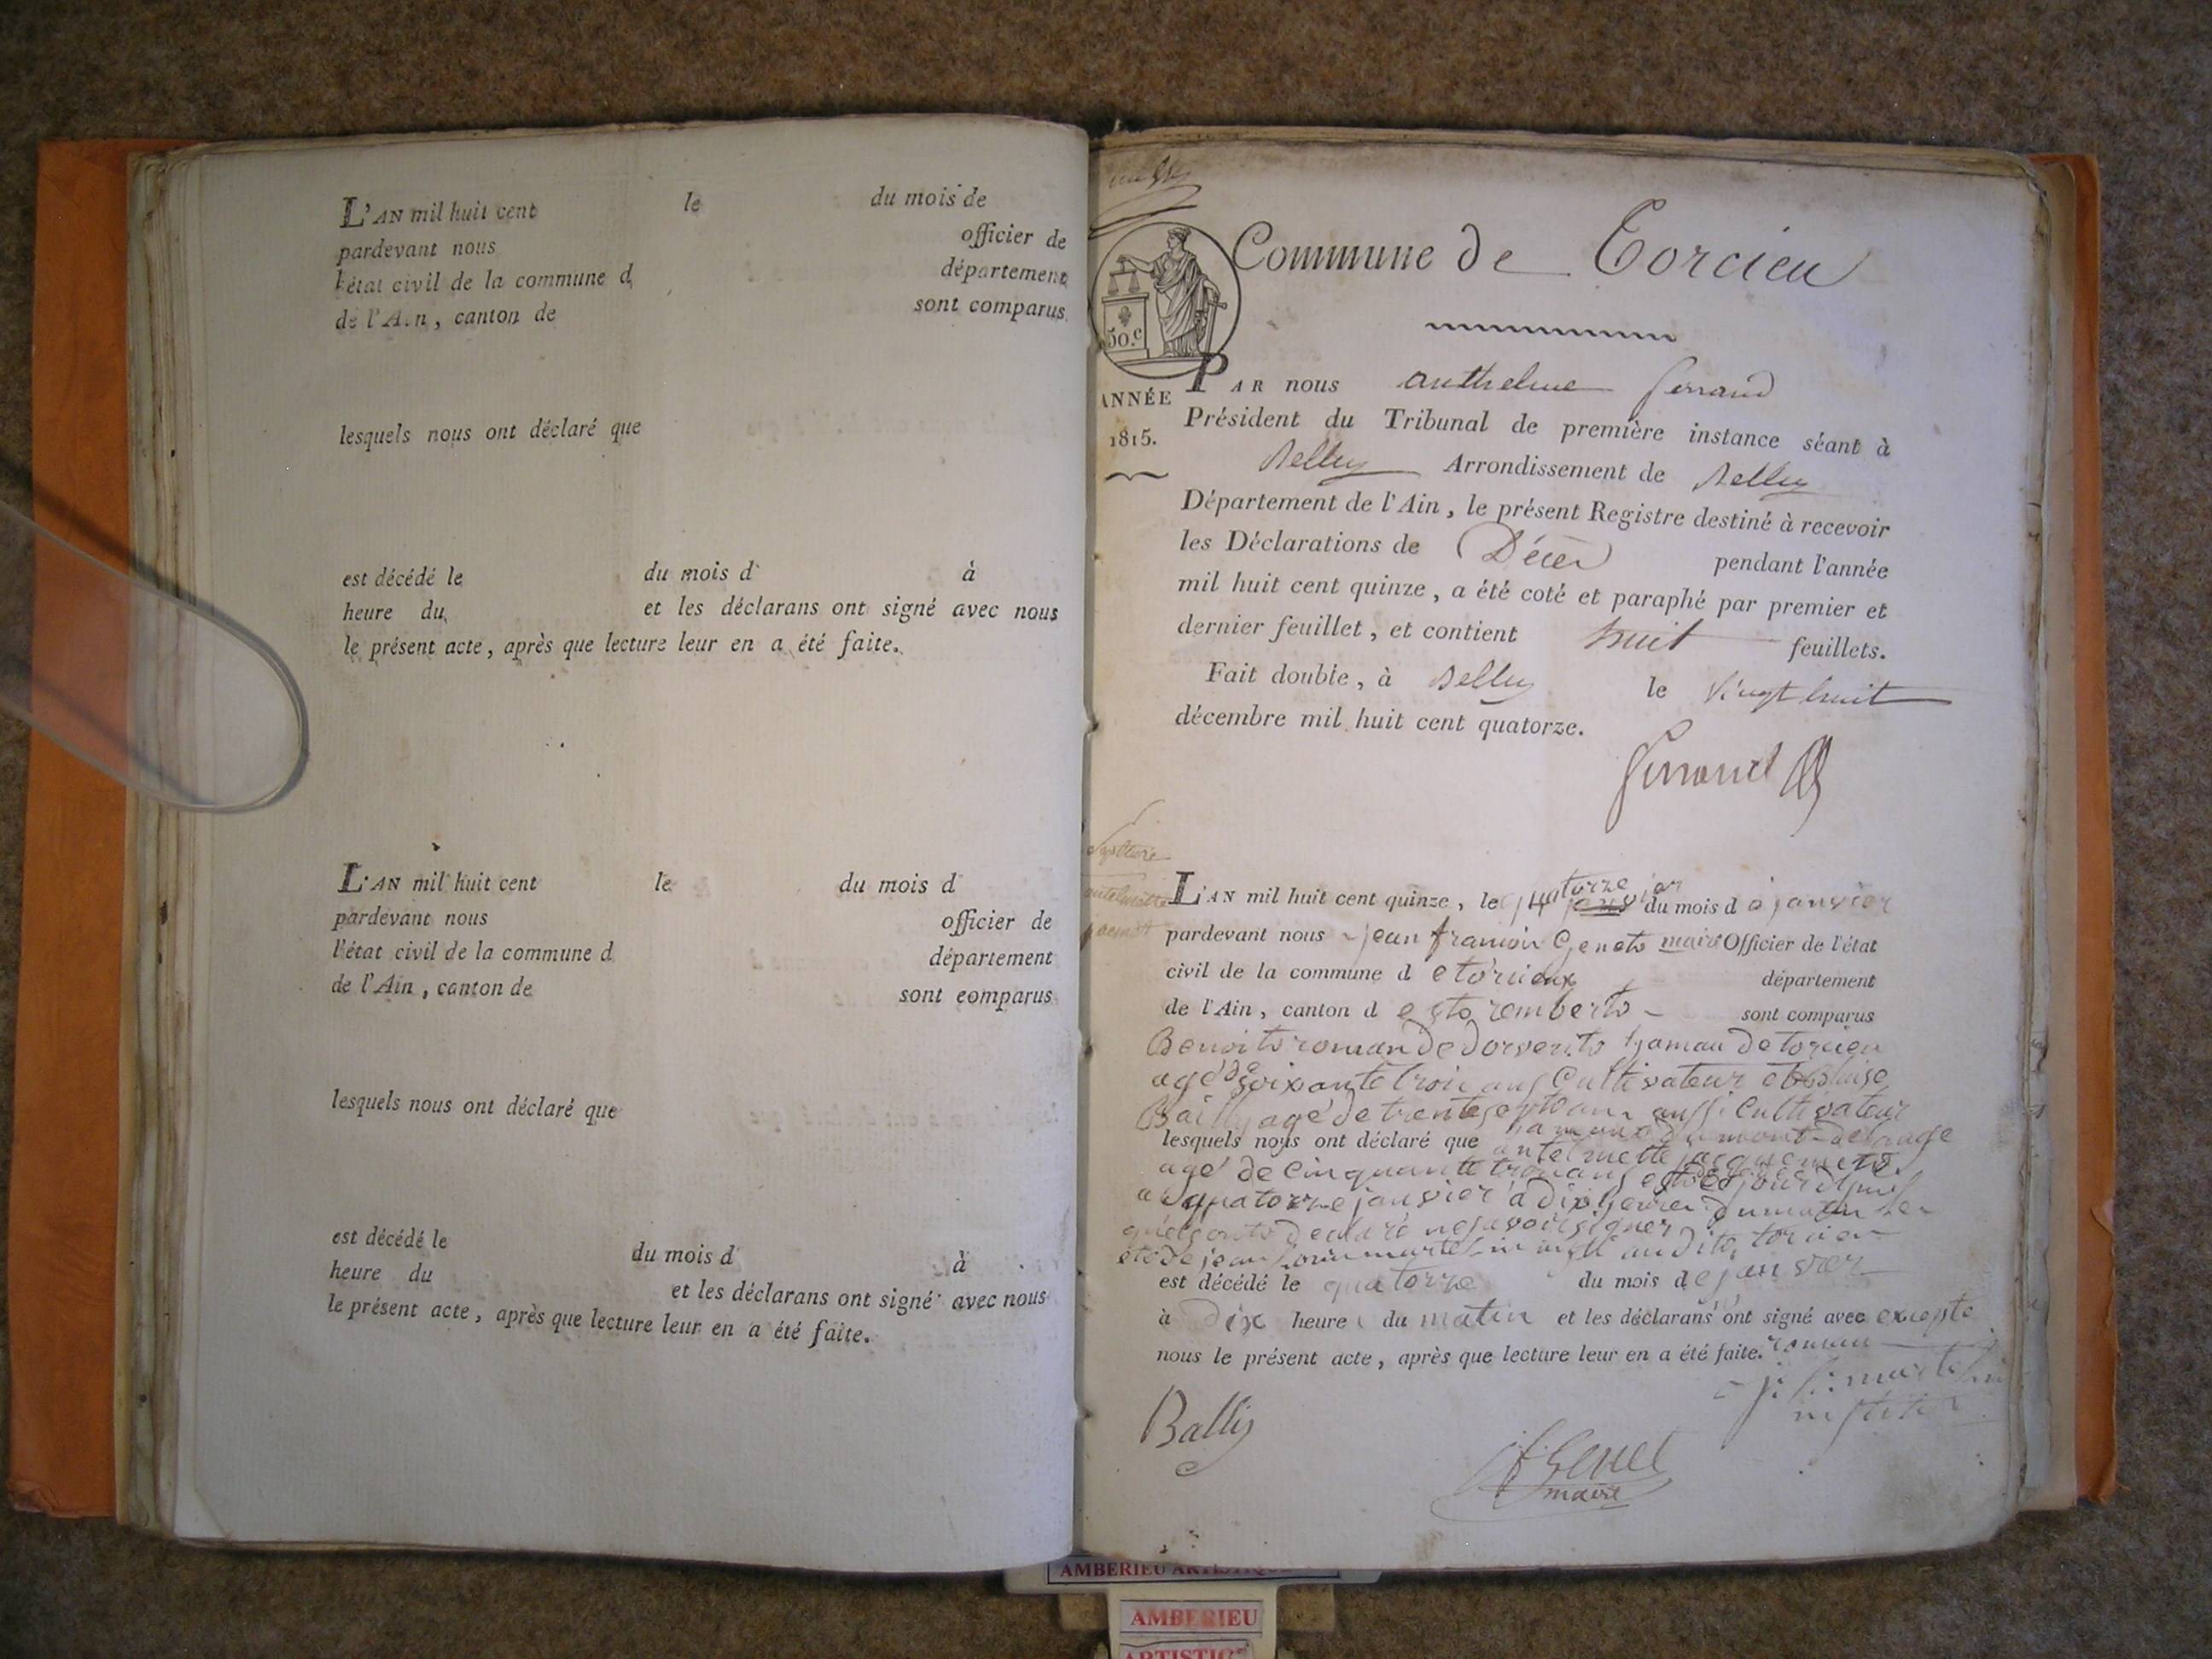 L'AN mil huit cent le du mois de
pardevant nous officier de
l'état civil de la commune d département
de l'Ain, canton de sont comparus
lesquels nous ont déclaré que
est décédé le du mois d à
heure du et les déclarans ont signé avec nous
le présent acte, après que lecture leur en a été faite.
L'AN mil huit cent le du mois d
pardevant nous officier de
l'état civil de la commune d département
de l'Ain, canton de sont comparus
lesquels nous ont déclaré que
est décédé le du mois d à
heure du et les déclarans ont signé avec nous
le présent acte, après que lecture leur en a été faite.
Commune de Torcieu
50.c
ANNÉE
1815.
PAR nous anthelme
Président du Tribunal de première instance séant à
Belley Arrondissement de Belley
Département de l'Ain, le présent Registre destiné à recevoir
les Déclarations de Décès pendant l'année
mil huit cent quinze, a été coté et paraphé par premier et
dernier feuillet, et contient huit feuillets.
Fait double, à Belley le vingt huit
décembre mil huit cent quatorze.
L'AN mil huit cent quinze, le quatorze du mois d e janvier
pardevant nous jean francois Genets maire Officier de l'état
civil de la commune d e torcieux département
de l'Ain, canton d e st remberts sont comparus
Benoits roman de dorvents hamau de torcieu
agé de soixante trois ans Cultivateur et Blaise
Bailly agé de trente septs ans aussi Cultivateur
lesquels nous ont déclaré que antelmette jacquemets
agé de Cinquante trois ans
quatorze janvier a dix heures du matin
quels onts declaré ne savoir signer
est décédé le quatorze du mois d e janvier
à dix heures du matin et les déclarans ont signé avec excepté
nous le présent acte, après que lecture leur en a été faite. roman
Bally
jf Genet
maire
AMBERIEU ARTISTIQUE
AMBERIEU
ARTISTIQ